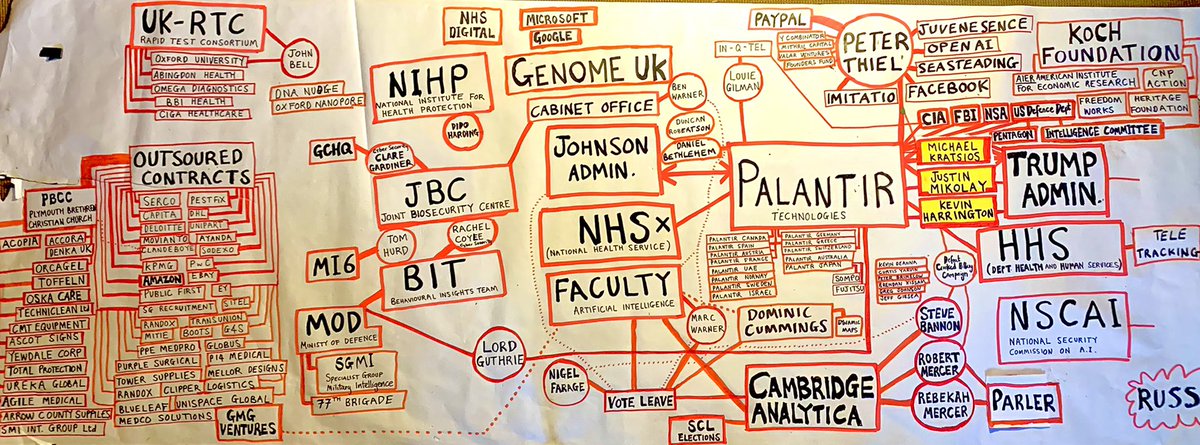 UK-RTC
RAPID TEST CONSORTIUM
OXFORD UNIVERSITY
ABINGDON HEALTH
OMEGA DIAGNOSTICS
BBI HEALTH
CIGA HEALTHCARE
JOHN
BELL
DNA NUDGE
OXFORD NANOPORE
OUTSOURED
CONTRACTS
PBCC
PLYMOUTH BRETHREN
CHRISTIAN CHURCH
ACOPIA
ACCORA
DENKA UK
ORCAGEL
TOFFELN
OSKA CARE
TECHNICLEAN ltd
CMT EQUIPMENT
ASCOT SIGNS
YEWDALE CORP
TOTAL PROTECTION
UREKA GLOBAL
AGILE MEDICAL
ARROW COUNTY SUPPLIES
SMI INT. GROUP Ltd
SERCO
PESTFIX
CAPITA
DHL
DELOITTE
UNIPART
MOVIANTO
AYANDA
CLANDEBOYE
SODEXO
KPMG
PwC
AMAZON
EBAY
PUBLIC FIRST
EY
SG RECRUITMENT
SITEL
RANDOX
TRANSUNION
MITIE
BOOTS
G4S
PPE MEDPRO
GLOBUS
PURPLE SURGICAL
P14 MEDICAL
TOWER SUPPLIES
MELLOR DESIGNS
RANDOX
CLIPPER
LOGISTICS
BLUELEAF
UNISPACE GLOBAL
MEDCO SOLUTIONS
GMG
VENTURES
NHS
DIGITAL
MICROSOFT
GOOGLE
NIHP
NATIONAL INSTITUTE FOR
HEALTH PROTECTION
DIDO
HARDING
GENOME UK
CABINET OFFICE
BEN
WARNER
GCHQ
Cyber Security
CLARE
GARDINER
JBC
JOINT BIOSECURITY CENTRE
JOHNSON
ADMIN.
DUNCAN
ROBERTSON
DANIEL
BETHLEHEM
TOM
HURD
RACHEL
COYEE
MI6
BIT
BEHAVIOURAL INSIGHTS TEAM
NHSx
(NATIONAL HEALTH SERVICE)
FACULTY
ARTIFICIAL INTELLIGENCE
MOD
MINISTY OF DEFENCE
SGMI
SPECIALIST GROUP
Military Intelligence
77TH BRIGADE
LORD
GUTHRIE
NIGEL
FARAGE
VOTE LEAVE
SCL
ELECTIONS
MARC
WARNER
DOMINIC
CUMMINGS
DYNAMIC
MAPS
CAMBRIDGE
ANALYTICA
IN-Q-TEL
LOUIE
GILMAN
PALANTIR
TECHNOLOGIES
PALANTIR CANADA
PALANTIR SPAIN
PALANTIR AUSTRIA
PALANTIR FRANCE
PALANTIR UAE
PALANTIR NORWAY
PALANTIR SWEDEN
PALANTIR ISRAEL
PALANTIR GERMANY
PALANTIR GREECE
PALANTIR SWITZERLAND
PALANTIR AUSTRALIA
PALANTIR JAPAN
SOMPO
FUJITSU
PAYPAL
Y COMBINATOR
MITHRIL CAPITAL
VALAR VENTURES
FOUNDERS FUND
PETER
THIEL
IMITATIO
JUVENESENCE
OPEN AI
SEASTEADING
FACEBOOK
KOCH
FOUNDATION
AIER AMERICAN INSTITUTE
FOR ECONOMIC RESEARCH
CNP
ACTION
FREEDOM
WORKS
HERITAGE
FOUNDATION
CIA
FBI
NSA
US Defence Dept
PENTAGON
INTELLIGENCE COMMITTEE
MICHAEL
KRATSIOS
JUSTIN
MIKOLAY
KEVIN
HARRINGTON
TRUMP
ADMIN.
HHS
(DEPT HEALTH AND HUMAN SERVICES)
TELE
TRACKING
Defeat
Crooked Hillary
Campaign
KEVIN DEANNA
CURTIS YARVIN
PETER BRIMELOW
GREG JOHNSON
JEFF GIESEA
STEVE
BANNON
ROBERT
MERCER
REBEKAH
MERCER
PARLER
NSCAI
NATIONAL SECURITY
COMMISSION ON A.I.
RUSS